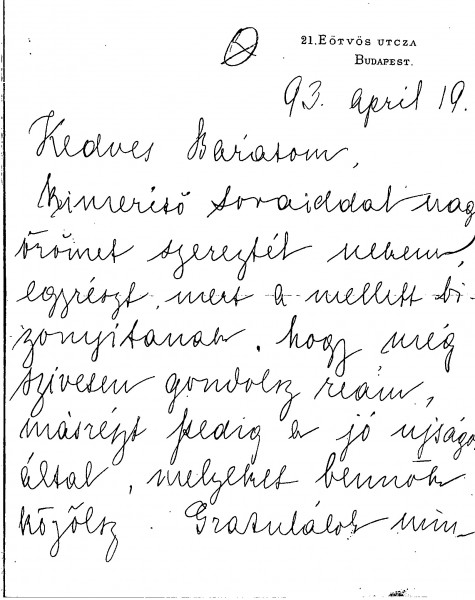 21. EÖTVÖS UTCZA
BUDAPEST.
93. april 19.
Kedves Barátom,
kimerítő soraiddal nag
örömet szereztél nekem,
egyrészt, mert a mellett bi-
zonyítanak, hogy még
szívesen gondolsz reám,
másrészt pedig a jó ujságo
által, melyeket bennök
közölsz. Gratulálok min-